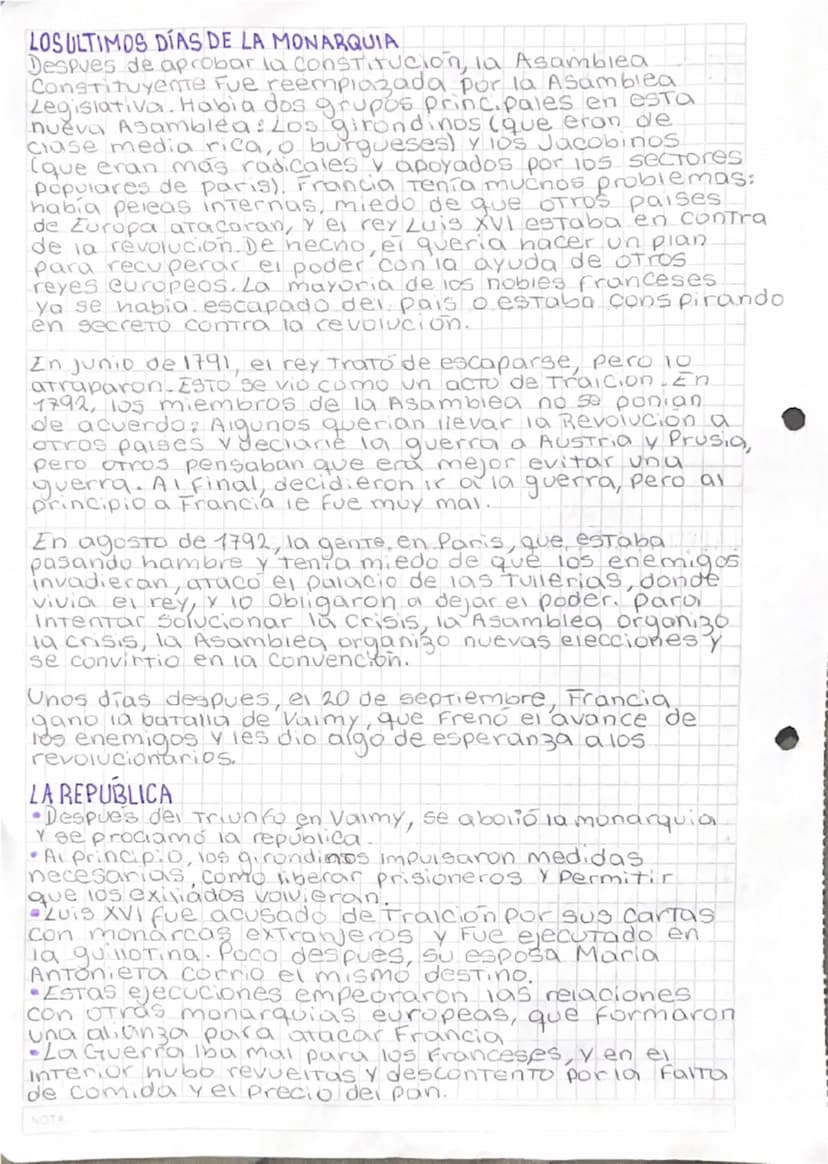 LOS ULTIMOS DÍAS DE LA MONARQUIA
Despues de aprobar la constitución, la Asamblea
Constituyente fue reemplazada por la Asamblea
Legislativa. Habia dos grupos principales en esta
nueva Asamblea: Los girondinos (que eran de
clase media rica, o burgueses) y los Jacobinos
(que eran más radicales y apoyados por los sectores
populares de paris). Francia tenía muchos problemas:
había peleas internas, miedo de que otros paises
de Europa atacaran, y el rey Luis XVI estaba en contra
de la revolucion. De hecho, él queria hacer un plan
para recuperar el poder con la ayuda de otros
reyes europeos. La mayoria de los nobles franceses
ya se habia escapado del pais o estaba conspirando
en secreto contra la revolución.
En junio de 1791, el rey trató de escaparse, pero lo
atraparon. Esto se vio como un acto de traicion. En
1792, los miembros de la Asamblea no se ponian
de acuerdo: Algunos querian llevar la Revolución a
otros paises y declarle la guerra a Austria y Prusia,
pero otros pensaban que era mejor evitar una
guerra. Al final, decidieron ir a la guerra, pero al
principio a Francia le fue muy mal.
En agosto de 1792, la gente en Paris, que estaba
pasando hambre y tenia miedo de que los enemigos
invadieran, atacó el palacio de las tullerias, donde
vivia el rey, y lo obligaron a dejar el poder. Para
intentar solucionar la crisis, la Asamblea organizo
la crisis, la Asamblea organizo nuevas elecciones y
se convirtio en la Convención.
Unos días despues, el 20 de septiembre, Francia
ganó la batalla de Valmy, que frenó el avance de
los enemigos y les dio algo de esperanza a los
revolucionarios.
LA REPÚBLICA
•Después del triunfo en Valmy, se abolió la monarquia
y se proclamó la república.
•Al principio, los girondinos impulsaron medidas
necesarias, como liberar prisioneros y permitir
que los exiliados volvieran.
•Luis XVI fue acusado de traición por sus cartas
con monarcas extranjeros y fue ejecutado en
la guillotina. Poco despues, su esposa María
Antonieta corrio el mismo destino.
•Estas ejecuciones empeoraron las relaciones
con otras monarquias europeas, que formaron
una alianza para atacar Francia
•La Guerra iba mal para los franceses, y en el
interior hubo revueltas y descontento por la falta
de comida y el precio del pan.
NOTA